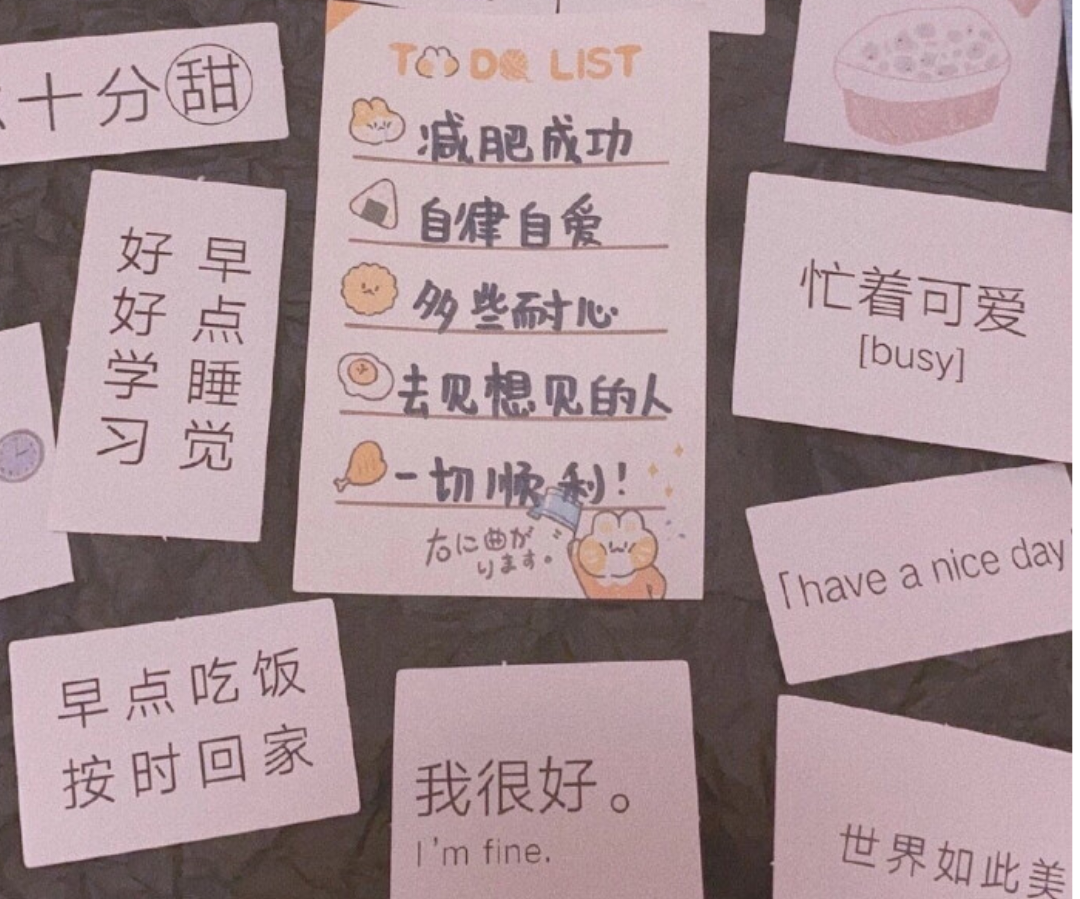 十分甜
TO DO LIST
减肥成功
自律自爱
多些耐心
去见想见的人
一切顺利!
右に曲が
ります。
早点睡觉
好好学习
忙着可爱
[busy]
「have a nice day
早点吃饭
按时回家
我很好。
I'm fine.
世界如此美